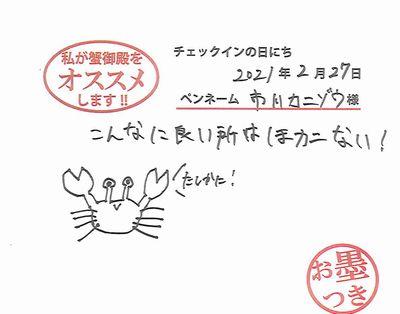 私が蟹御殿を
オススメ
します!!
チェックインの日にち
2021年2月27日
ペンネーム 市川カニゾウ様
こんなに良い所はほカニない!
たしかに!
お墨
つき